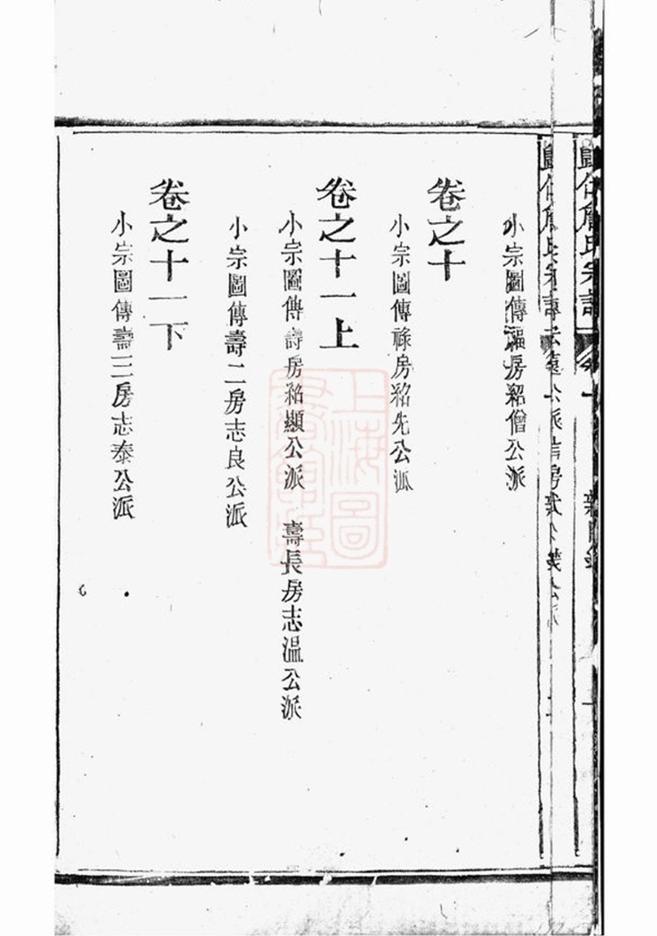 小宗圖傳福房紹僧公派
卷之十
小宗圖傳祿房紹先公派
卷之十一上
小宗圖傳壽房紹顯公派 壽長房志溫公派
小宗圖傳壽二房志良公派
卷之十一下
小宗圖傳壽三房志泰公派
上海圖